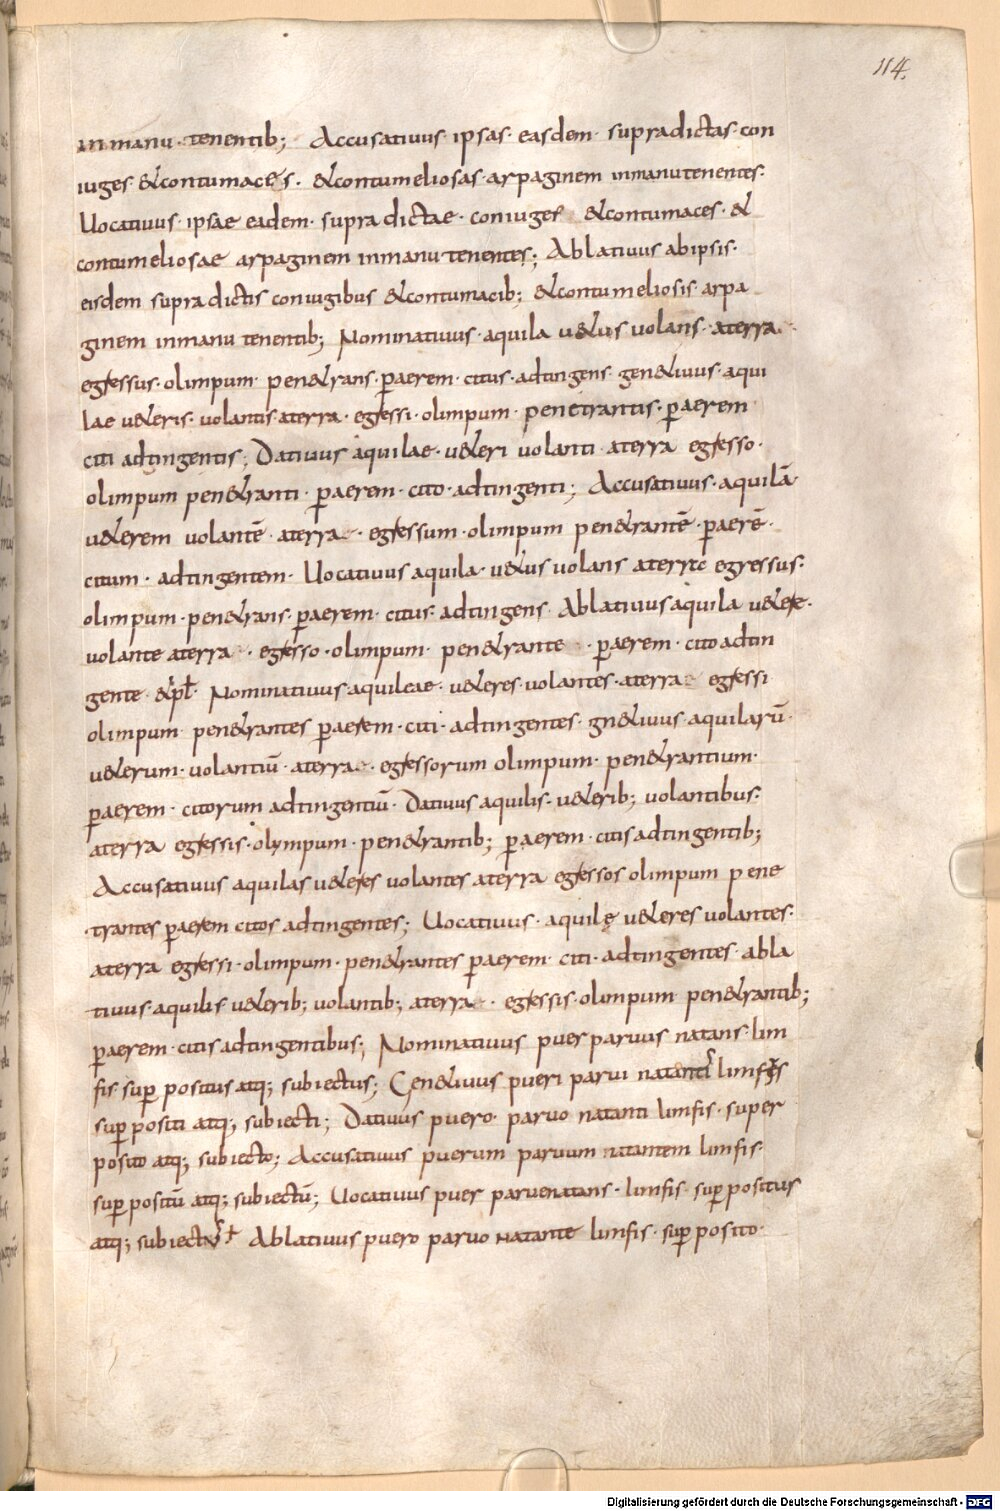 114.
in manu· tenentib; Accusativus· ipsas· easdem· supradictas· con
iuges &contumaces. &contumeliosas· arpaginem inmanutenentes·
Uocativus· ipsae eadem· supra dictae· coniuges &contumaces· &
contumeliosae arpaginem inmanu tenentes; Ablativus abipsis·
eisdem supra dictis coniugibus &contumacib; &contumeliosis arpa
ginem inmanu tenentib; Nominativus· aquila u&us uolans· aterra·
egressus· olimpum· pen&rans· paerem· citus· adtingens· gen&iuus· aqui
lae u&eris· uolantis aterra· egressi· olimpum· penetrantis· paerem
citi adtingentis; Dativus aquilae· u&eri uolanti· aterra egresso·
olimpum pen&ranti· paerem· cito· adtingenti; Accusativus· aquilā·
u&erem uolantē· aterra· egressum· olimpum pen&rantē· paerē·
citum· adtingentem· Uocativus aquila· u&us uolans aterra egressus·
olimpum· pen&rans· paerem· citus· adtingens· Ablativus aquila u&ere·
uolante aterra· egresso· olimpum· pen&rante· paerem· cito adtin
gente· &pł· Nominativus aquileae· u&eres· uolantes· aterra egressi
olimpum· pen&rantes paerem· citi· adtingentes· gn&iuus· aquilarū·
u&erum· uolantiū· aterra· egressorum olimpum· pen&rantium·
paerem· citorum adtingentiū· Dativus aquilis· u&erib; uolantibus·
aterra egressis· olympum· pen&rantib; paerem· citis adtingentib;
Accusativus aquilas u&eres uolantes aterra egressos olimpum pene
trantes paerem citos adtingentes; Uocativus· aquilę u&eres uolantes·
aterra egressi· olimpum· pen&rantes paerem· citi· adtingentes· abla
tiuus· aquilis u&erib; uolantib; aterra· egressis· olimpum pen&rantib;
paerem· citis adtingentibus; Nominativus puer paruus natans· lim
fis· sup positus atq; subiectus; Gen&iuus pueri parui natantis limfis
sup positi atq; subiecti; Dativus puero· paruo natanti limfis· super
posito atq; subiecto; Accusativus puerum paruum natantem limfis·
sup positū atq; subiectū; Uocativus puer paruenatans· limfis· sup positus
atq; subiectus Ablativus puero paruo natante limfis· sup posito·
Digitalisierung gefördert durch die Deutsche Forschungsgemeinschaft - DFG